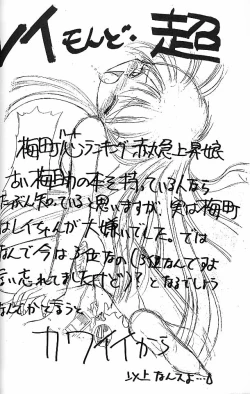 レイモンど・超
梅町バンランキング赤丸急上昇娘
古い梅町の本を持っている人なら
たぶん知っていると思いますが、実は梅町
はレイちゃんが大嫌いでした。では
なんで今は3位なの(3位なんですよ
言い忘れてましたけど)?となるでしょう
なんでかと言うと
カワイイから
以上なんスよ…。